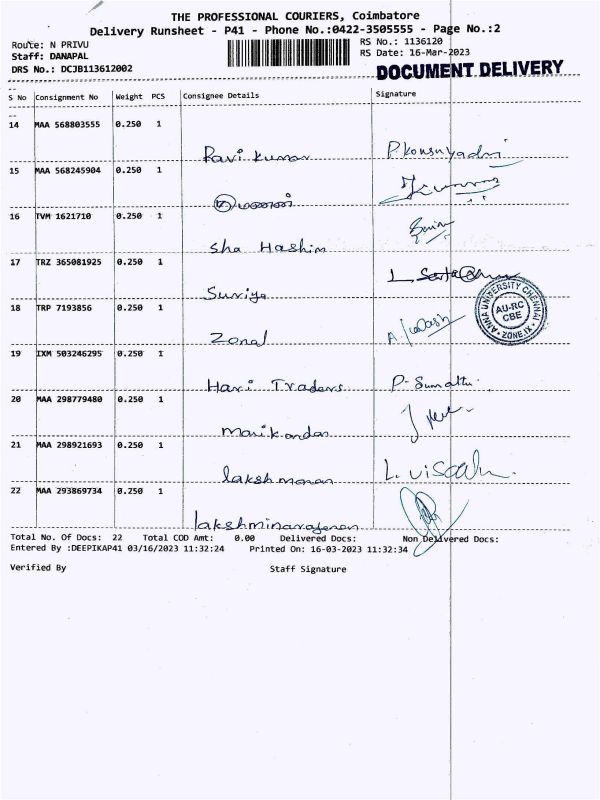 THE PROFESSIONAL COURIERS, Coimbatore
Delivery Runsheet - P41 - Phone No.:0422-3505555 - Page No.:2
Route: N PRIVU
RS No.: 1136120
Staff: DANAPAL
RS Date: 16-Mar-2023
DRS No.: DCJB113612002
DOCUMENT DELIVERY
S No Consignment No Weight PCS Consignee Details Signature
14 MAA 568803555 0.250 1
Ravi kumar
15 MAA 568245904 0.250 1
16 TVM 1621710 0.250 1
Sha Hashim
17 TRZ 365081925 0.250 1
Suriya
18 TRP 7193856 0.250 1
Zonal
ANNA UNIVERSITY CHENNAI
AU-RC
CBE
ZONE.IX
19 IXM 503246295 0.250 1
Hari Traders
20 MAA 298779480 0.250 1
manikandan
21 MAA 298921693 0.250 1
lakshmanan
22 MAA 293869734 0.250 1
lakshminarayanan
Total No. Of Docs: 22 Total COD Amt: 0.00 Delivered Docs: Non Delivered Docs:
Entered By :DEEPIKAP41 03/16/2023 11:32:24 Printed On: 16-03-2023 11:32:34
Verified By Staff Signature